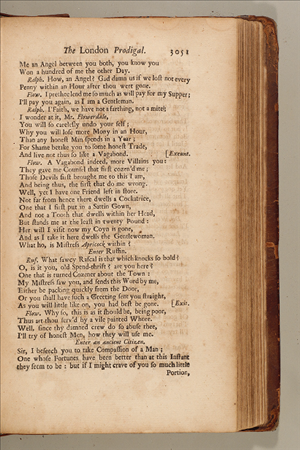 The London Prodigal. 3051
Me an Angel between you both, you know you
Won a hundred of me the other day.
Ralph. How, an Angel? God damn us if we lost not every
Penny within an Hour after thou wert gone.
Flow. I prethee lend me so much as will pay for my Supper;
I'll pay you again, as I am a Gentleman.
Ralph. I'Faith, we have not a farthing, not a mite;
I wonder at it, Mr. Flowerdale,
You will so carelesly undo your self;
Why you will lose more Mony in an Hour,
Than any honest Man spends in a Year;
For Shame betake you to some honest Trade,
And live not thus so like a Vagabond. [Exeunt.
Flow. A Vagabond indeed, more Villains you:
They gave me Counsel that first cozen'd me;
Those Devils first brought me to this I am,
And being thus, the first that do me wrong.
Well, yet I have one Friend left in store.
Not far from hence there dwells a Cockatrice,
One that I first put in a Sattin Gown,
And not a Tooth that dwells within her Head,
But stands me at the least in twenty Pound:
Her will I visit now my Coyn is gone,
And as I take it here dwells the Gentlewoman.
What ho, is Mistress Apricock within?
Enter Ruffin.
Ruf. What sawcy Rascal is that which knocks so bold?
O, is it you, old Spend-thrift? are you here?
One that is turned Cozener about the Town:
My Mistress saw you, and sends this Word by me,
Either be packing quickly from the Door,
Or you shall have such a Greeting sent you straight,
As you will little like on, you had best be gone. [Exit.
Flow. Why so, this is as it should be, being poor,
Thus art thou serv'd by a vile painted Whore.
Well, since thy damned crew do so abuse thee,
I'll try of honest Men, how they will use me.
Enter an ancient Citizen.
Sir, I beseech you to take Compassion of a Man;
One whose Fortunes have been better than at this Instant
they seem to be: but if I might crave of you so much little
Portion,